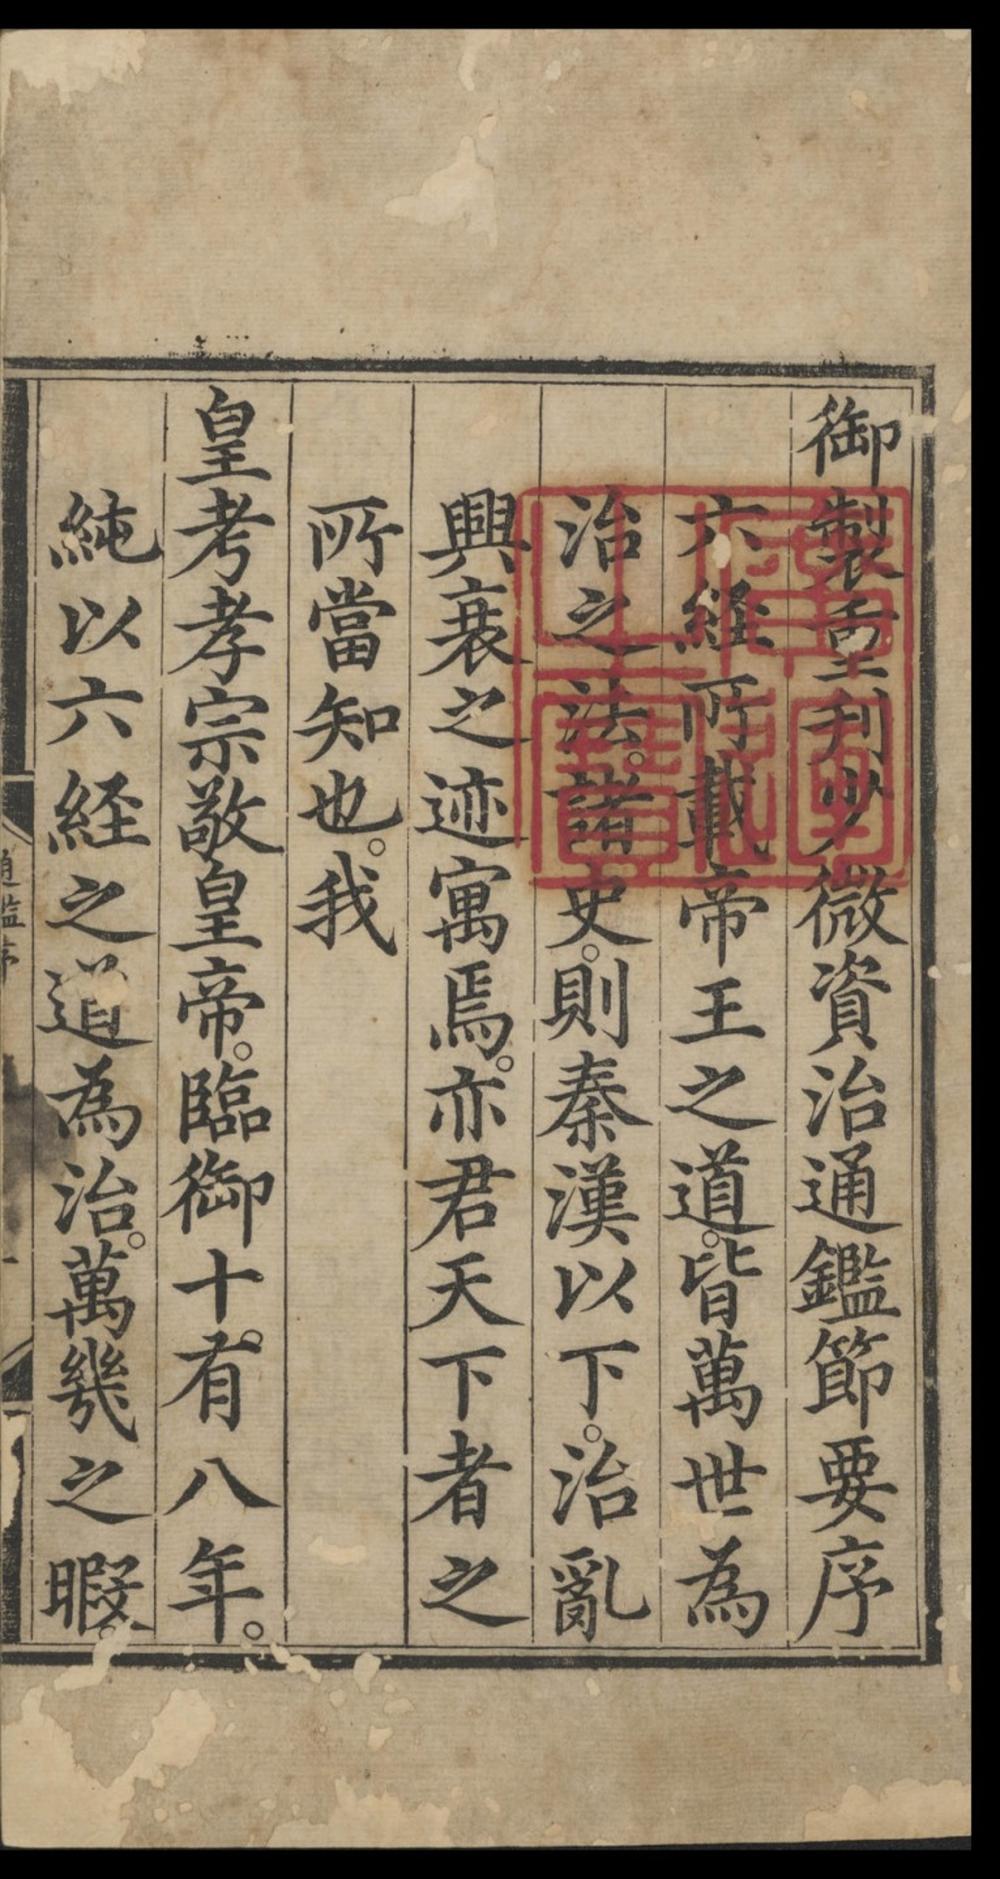 御製重刋少微資治通鑑節要序
六経所載帝王之道。皆萬世為
治之法。諸史。則秦漢以下。治亂
興衰之迹寓焉。亦君天下者之
所當知也。我
皇考孝宗敬皇帝。臨御十。有八年。
純以六経之道為治。萬幾之暇。
通鑑序